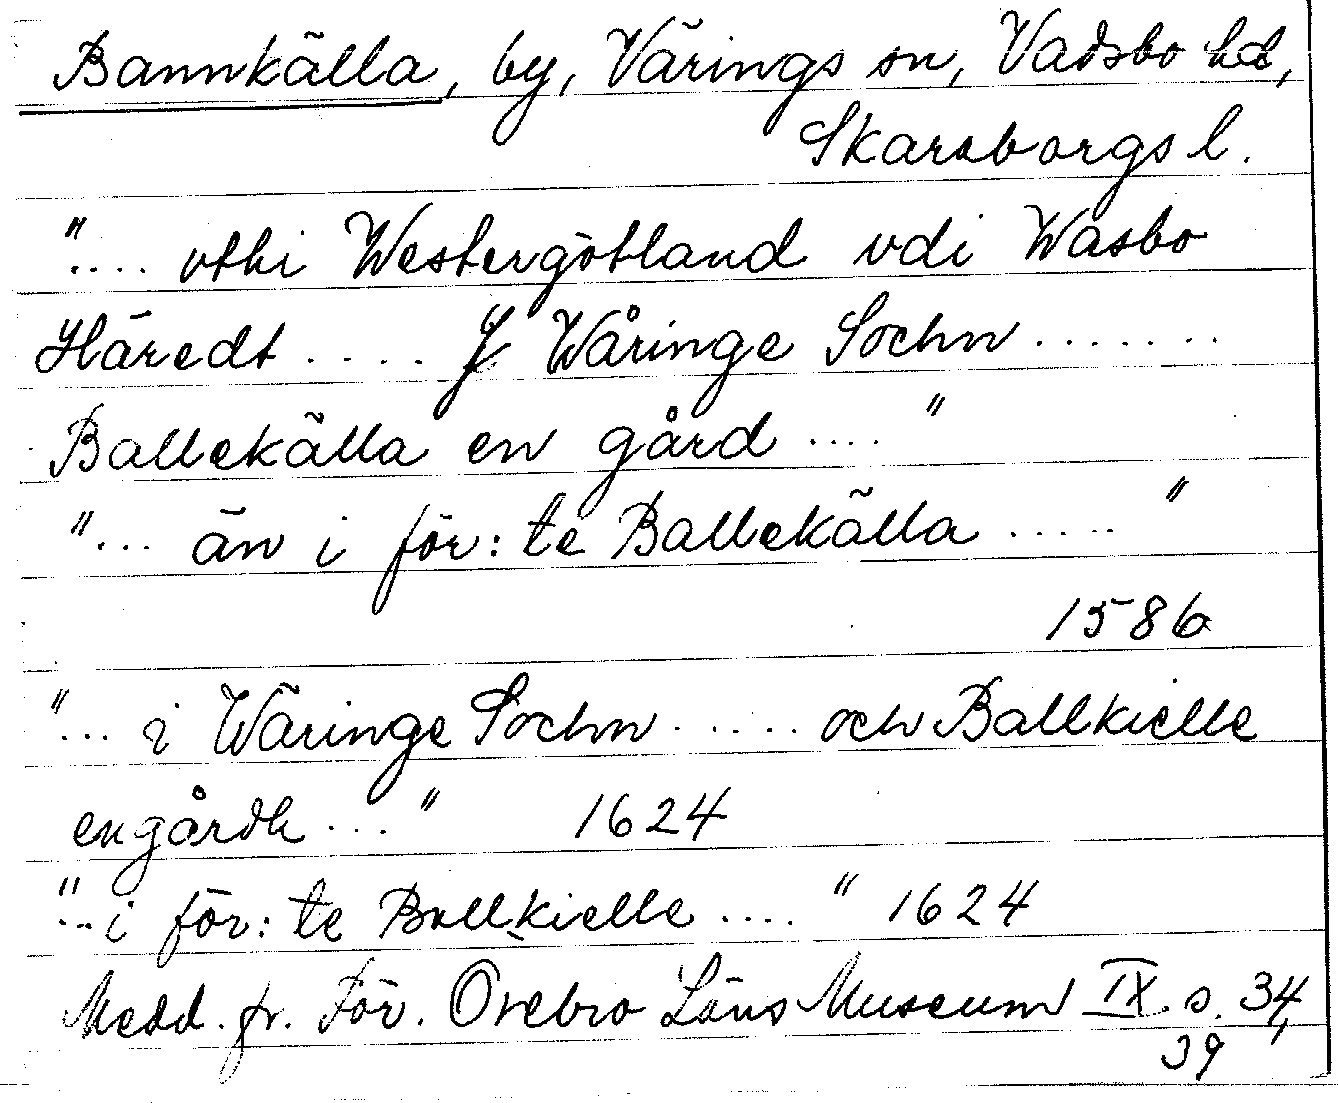 Bannkälla, by, Värings sn, Vadsbo hd,
Skaraborgs l.
".... vthi Westergötland vdi Wasbo
Häredt .... J Wåringe Sochn .......
Ballekälla en gård .... "
"... än i för:te Ballekälla ..... "
1586
"... i Wäringe Sochn ..... och Ballkielle
en gårdh ... " 1624
"... i för:te Ballkielle .... " 1624
Medd. fr. För. Örebro Läns Museum IX s. 34,
39